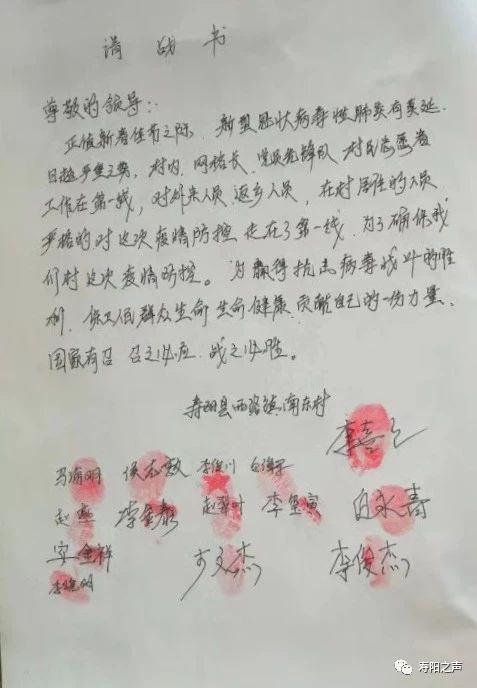 请战书
尊敬的领导:
正值新春佳节之际,新型冠状病毒性肺炎有蔓延
日趋严重之势,村内、网格长、党员先锋队、村民志愿者
工作在第一线,对外来人员返乡人员,在村居住的人员
严格的对这次疫情防控走在了第一线,为了确保我
们村这次疫情防控。为赢得抗击病毒战斗的胜
利,保卫信群众生命生命健康贡献自己的一份力量、
国家有召 召之必应 战之必胜。
寿阳县西洛镇南东村
李喜
马清明 侯志敏 李俊川
赵 李金 赵翠叶 李
白永寿
安金祥 文杰 李俊杰
李 明
寿阳之声